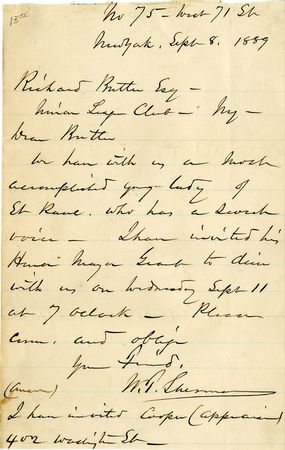 No 75 - West 71 St
New York, Sept 8, 1889
Richard Butler Esq -
Union League Club - Ny -
Dear Butler
We have with us a most
accomplished young lady of
St. who has a sweet
voice - I have invited his
Honor Mayor Grant to dine
with us on Wednesday Sept 11
at 7 oclock - Please
come, and oblige
Your Friend,
W. T. Sherman
(Answer)
I have invited Cooper (appraiser)
402 Washigtn St -